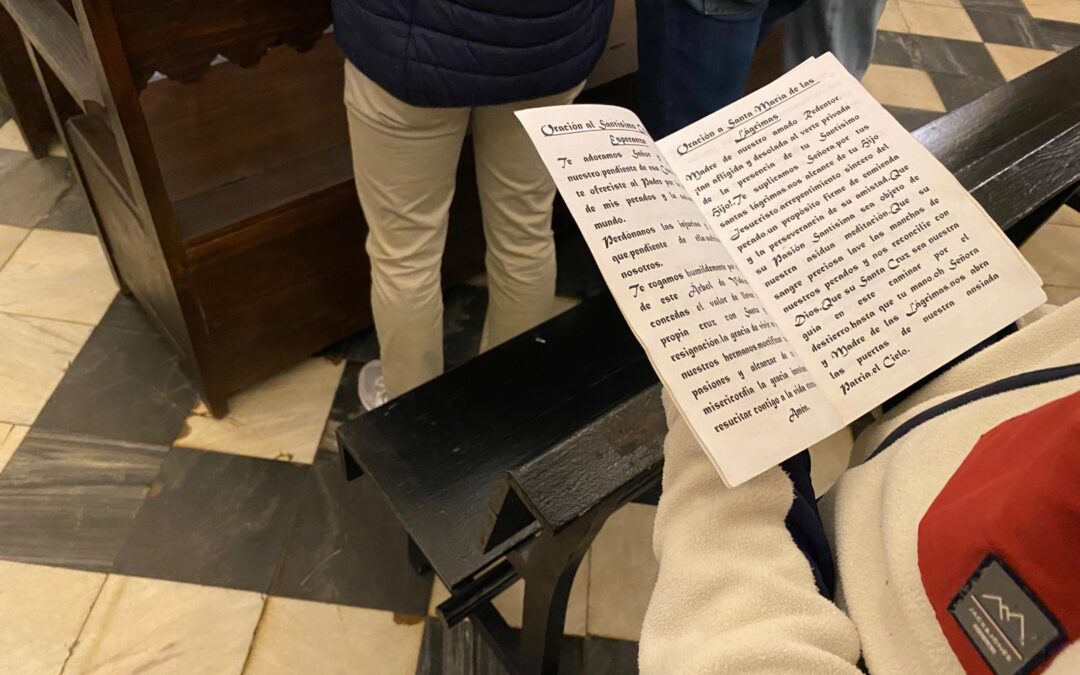 Oración al Santísimo
Esperanza
Te adoramos Señor
nuestro,pendiente de esa
te ofreciste al Padre por
de mis pecados y la
mundo.
Perdónanos las injurias
que,pendiente de ella
nosotros.
Te rogamos humildemente
de este Árbol de
concedas el valor de llevar
propia cruz con Santa
resignación,la gracia de vivir
nuestros hermanos,mortificar
pasiones y alcanzar de
misericordia la gracia
resucitar contigo a la vida
Amén.
Oración a Santa María de las
Lágrimas
Madre de nuestro amado Redentor,
tan afligida y desolada al verte privada
de la presencia de tu Santísimo
Hijo!.Te suplicamos Señora,por tus
santas lágrimas,nos alcance de tu Hijo
Jesucristo,arrepentimiento sincero del
pecado,un propósito firme de enmienda
y la perseverancia de su amistad.Que
su Pasión Santísima sea objeto de
nuestra asiduan meditación.Que su
sangre preciosa lave las manchas de
nuestros pecados y nos reconcilie con
Dios.Que su Santa Cruz sea nuestra
guía en este caminar por el
destierro,hasta que tu mano,oh Señora
y Madre de las Lágrimas,nos abra
las puertas de nuestra ansiada
Patria,el Cielo.
JACK&JONES